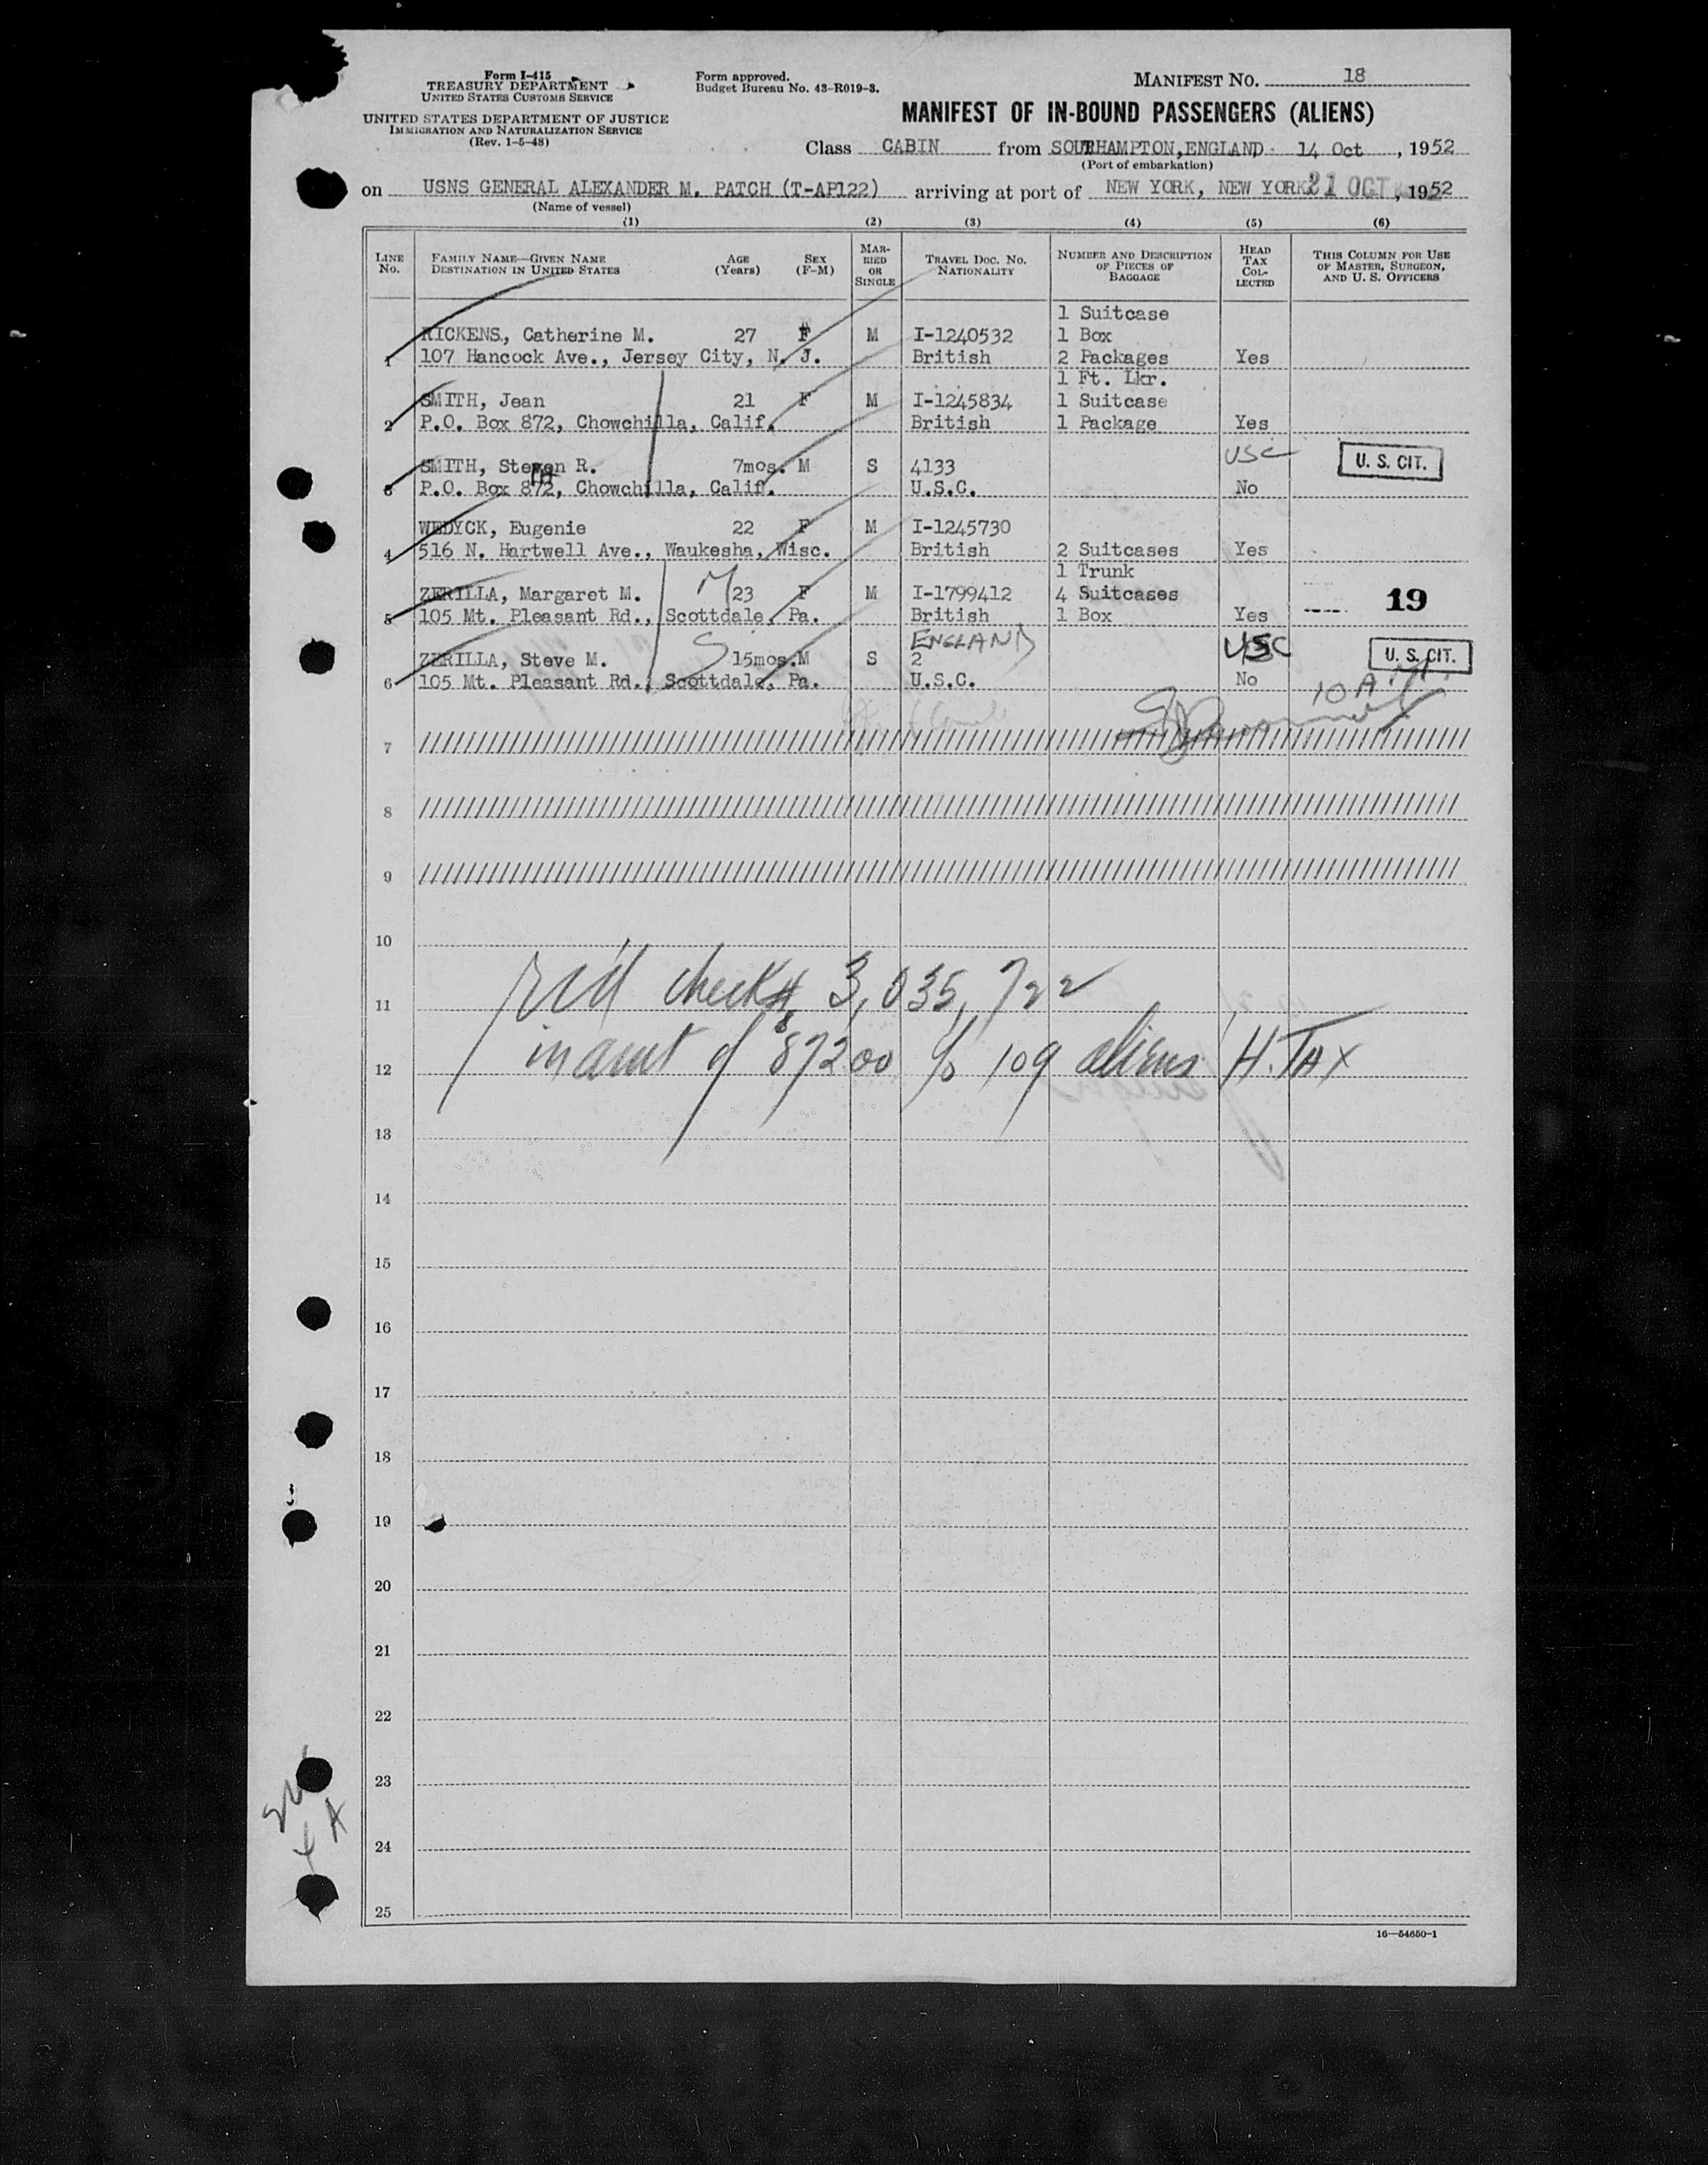 Form I-415
TREASURY DEPARTMENT
UNITED STATES CUSTOMS SERVICE
UNITED STATES DEPARTMENT OF JUSTICE
IMMIGRATION AND NATURALIZATION SERVICE
(Rev. 1-5-48)
Form approved.
Budget Bureau No. 43-R019-3.
MANIFEST NO. 18
MANIFEST OF IN-BOUND PASSENGERS (ALIENS)
Class CABIN from SOUTHAMPTON, ENGLAND 14 Oct, 1952
(Port of embarkation)
on USNS GENERAL ALEXANDER M. PATCH (T-AP122) arriving at port of NEW YORK, NEW YORK 21 OCT, 1952
(Name of vessel)
(1) (2) (3) (4) (5) (6)
LINE No. FAMILY NAME—GIVEN NAME DESTINATION IN UNITED STATES AGE (Years) SEX (F-M) MARRIED OR SINGLE TRAVEL DOC. NO. NATIONALITY NUMBER AND DESCRIPTION OF PIECES OF BAGGAGE HEAD TAX COLLECTED THIS COLUMN FOR USE OF MASTER, SURGEON, AND U. S. OFFICERS
1 Suitcase
RICKENS, Catherine M. 27 F M I-1240532 1 Box
1 107 Hancock Ave., Jersey City, N. J. British 2 Packages Yes
1 Ft. Lkr.
SMITH, Jean 21 F M I-1245834 1 Suitcase
2 P.O. Box 872, Chowchilla, Calif. British 1 Package Yes
SMITH, Steven R. 7mos. M S 4133 USC U. S. CIT.
3 P.O. Box 872, Chowchilla, Calif. U.S.C. No
WEDYCK, Eugenie 22 F M I-1245730
4 516 N. Hartwell Ave., Waukesha, Wisc. British 2 Suitcases Yes
1 Trunk
ZERILLA, Margaret M. M 23 F M I-1799412 4 Suitcases 19
5 105 Mt. Pleasant Rd., Scottdale, Pa. British 1 Box Yes
ENGLAND USC
ZERILLA, Steve M. S 15mos. M S 2 U. S. CIT.
6 105 Mt. Pleasant Rd., Scottdale, Pa. U.S.C. No
10 A.M.
7
8
9
10
11 check # 3,035,722
12 in amt of $872.00 109 aliens H. TAX
13
14
15
16
17
18
19
20
21
22
23
24
25
16—54650-1